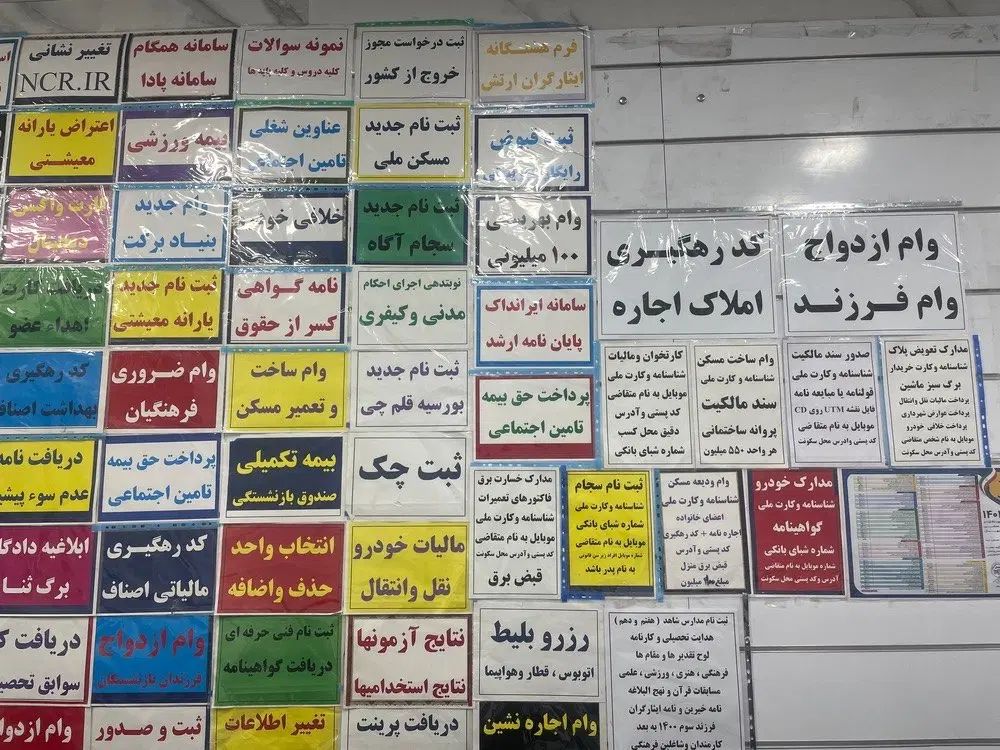 تغییر نشانی
NCR.IR
سامانه همگام
سامانه پادا
نمونه سوالات
کلیه دروس و کلیه پایه ها
ثبت درخواست مجوز
خروج از کشور
فرم هشتگانه
ایثارگران ارتش
اعتراض یارانه
معیشتی
بیمه ورزشی
عناوین شغلی
تامین اجتماعی
ثبت نام جدید
مسکن ملی
ثبت قبوض
کارت واکسن
دیجیتال
وام جدید
بنیاد برکت
خلافی
ثبت نام جدید
سجام آگاه
وام بهزیستی
۱۰۰ میلیونی
دریافت کارت
اهداء عضو
ثبت نام جدید
یارانه معیشتی
نامه گواهی
کسر از حقوق
نوبتدهی اجرای احکام
مدنی وکیفری
سامانه ایرانداک
پایان نامه ارشد
کد رهگیری
املاک اجاره
وام ازدواج
وام فرزند
کد رهگیری
بهداشت اصناف
وام ضروری
فرهنگیان
وام ساخت
و تعمیر مسکن
ثبت نام جدید
بورسیه قلم چی
پرداخت حق بیمه
تامین اجتماعی
کارتخوان ومالیات
شناسنامه وکارت ملی
موبایل به نام متقاضی
کد پستی وآدرس
دقیق محل کسب
شماره شبای بانکی
وام ساخت مسکن
شناسنامه وکارت ملی
سند مالکیت
پروانه ساختمانی
هر واحد ۵۵۰ میلیون
صدور سند مالکیت
شناسنامه وکارت ملی
قولنامه یا مبایعه نامه
فایل نقشه UTM روی CD
موبایل به نام متقاضی
کد پستی وآدرس محل سکونت
مدارک تعویض پلاک
شناسنامه وکارت خریدار
برگ سبز ماشین
پرداخت مالیات نقل وانتقال
پرداخت عوارض شهرداری
پرداخت خلافی خودرو
موبایل به نام شخص متقاضی
کد پستی وآدرس محل سکونت
دریافت نامه
عدم سوء پیشینه
پرداخت حق بیمه
تامین اجتماعی
بیمه تکمیلی
صندوق بازنشستگی
ثبت چک
مدارک خسارت برق
فاکتورهای تعمیرات
شناسنامه وکارت ملی
شماره شبای بانکی
موبایل به نام متقاضی
کد پستی وآدرس محل سکونت
قبض برق
ثبت نام سجام
شناسنامه وکارت ملی
شماره شبای بانکی
موبایل به نام متقاضی
کد پستی وآدرس محل سکونت
به نام پدر باشد
وام ودیعه مسکن
شناسنامه وکارت ملی
اعضای خانواده
اجاره نامه + کد رهگیری
کد پستی وآدرس
قبض برق منزل
مدارک خودرو
شناسنامه وکارت ملی
گواهینامه
شماره شبای بانکی
موبایل به نام متقاضی
آدرس و کد پستی محل سکونت
ابلاغیه دادگاه
برگ ثنا
کد رهگیری
مالیاتی اصناف
انتخاب واحد
حذف واضافه
مالیات خودرو
نقل وانتقال
دریافت
سوابق
وام ازدواج
فرزندان بازنشستگان
ثبت نام فنی حرفه ای
دریافت گواهینامه
نتایج آزمونها
نتایج استخدامیها
رزرو بلیط
اتوبوس ، قطار وهواپیما
ثبت نام مدارس شاهد ( هفتم و دهم )
هدایت تحصیلی و کارنامه
لوح تقدیر ها و مقام ها
فرهنگی ، هنری ، ورزشی ، علمی
مسابقات قرآن و نهج البلاغه
نامه خیرین و نامه ایثارگران
فرزند سوم ۱۴۰۰ به بعد
کارمندان وشاغلین فرهنگی
وام ازدواج
ثبت و صدور
تغییر اطلاعات
دریافت پرینت
وام اجاره نشین